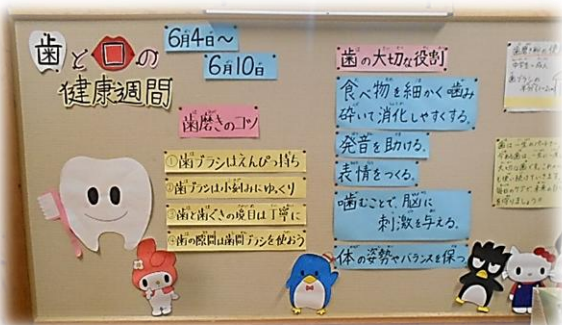 歯と口の
健康週間
6月4日～
6月10日
歯磨きのコツ
①歯ブラシはえんぴつ持ち
②歯ブラシは小刻みにゆっくり
③歯と歯ぐきの境目は丁寧に
④歯の隙間は歯間ブラシを使おう
歯の大切な役割
食べ物を細かく噛み
砕いて消化しやすくする。
発音を助ける。
表情をつくる。
噛むことで、脳に
刺激を与える。
体の姿勢やバランスを保つ